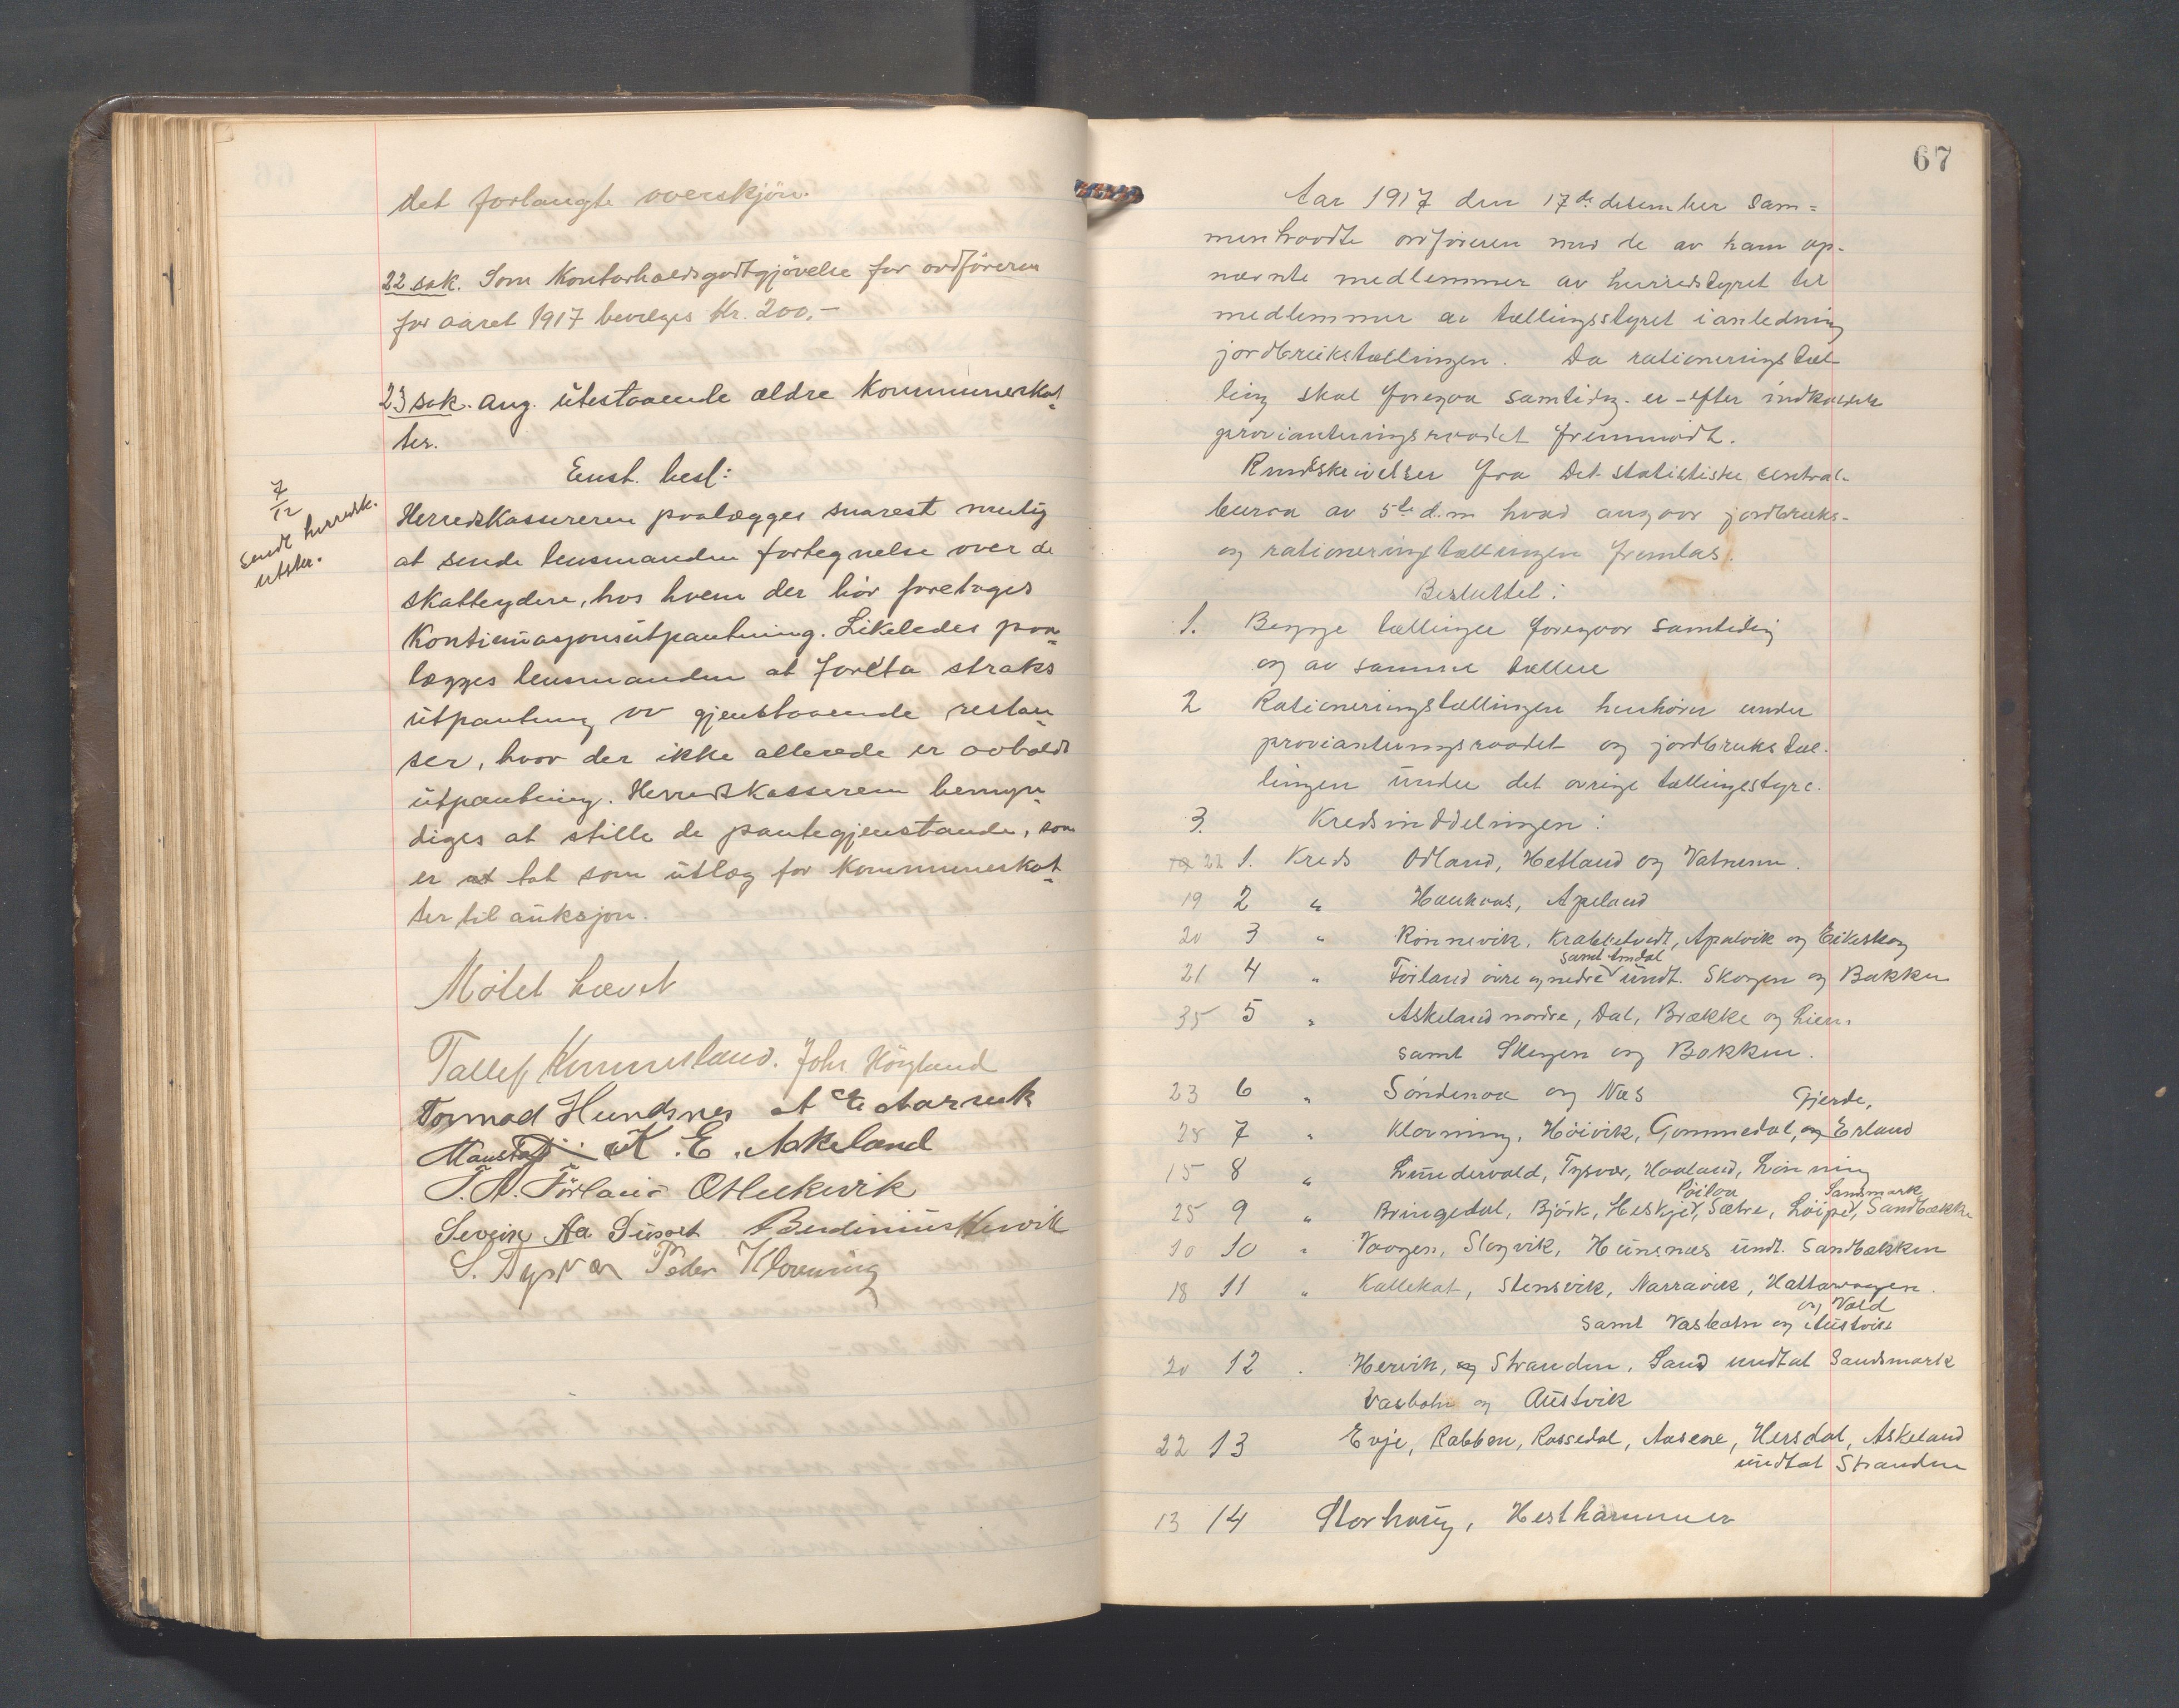 det forlangte overskjön.
22 sak. Som Kontorholdsgodtgjörelse for ordföreren
for aaret 1917 bevilges Kr. 200,-
23 sak. Ang. utestaaende ældre Kommuneskat-
ter.
Enst. besl:
7/12
Sendt herredsk.
utskr.
Herredskassereren paalægges snarest mulig
at sende lensmanden fortegnelse over de
skatteydere, hos hvem der bör foretages
Kontinuasjonsutpantning. Likeledes paa-
lægges lensmanden at foreta straks
utpantning av gjenstaaende restan-
ser, hvor der ikke allerede er avholdt
utpantning. Herredskassereren bemyn-
diges at stille de pantegjenstande, som
er tat som utlæg for Kommuneskat-
ter til auksjon.
Mötet hævet
Tallef Kinnerland. John Höyland
Tormod Hundsnes
K. E. Askeland
T. A. Förland O Hetlevik
Severin Aa Berdinius Hervik
S. Tysvær Peder Klovning
67
Aar 1917 den 17de desember sam=
mentraadte ordföreren med de av ham op-
nævnte medlemmer av herredstyret til
medlemmer av tællingsstyret i anledning
jordbrukstællingen. Da rationeringstæl-
ling skal foregaa samtidig er - efter indkaldelse
provianteringsraadet fremmödt.
Rundskrivelser fra Det statistiske central-
buraa av 5te d.m hvad angaar jordbruks-
og rationeringstællingen fremlas.
Besluttet:
1. Begge tællinger foregaar samtidig
og av samme tællere
2 Rationeringstællingen henhörer under
provianteringsraadet og jordbrukstæl-
lingen under det övrige tællingsstyre.
3. Kredsinddelningen:
22 1. Kreds Odland, Hetland og Vatnenn.
19 2 " Haukaas, Apeland
20 3 " Rönnevik, Krabbetvedt, Apalvik og Eikeskog
samt Amdal
21 4 " Förland övre og nedre undt. Skogen og Bakken
35 5 " Askeland nordre, Dal, Brække og Lien.
samt Skogen og Bakken.
23 6 " Söndenaa og Næs
Gjerde,
28 7 " Klovning, Höivik, Gommedal, og Erland
15 8 " Lundervold, Tysvær, Haaland, Lönning
Sandsmark
25 9 " Bringedal, Björk, Heskjed, Sætre, Löiped, Sandbække
10 10 " Vaagen, Slogvik, Hunsnæs undt. Sandbækken
18 11 " Kallekot, Stensvik, Narravik, Hattavaagen.
og Vold
samt Vasbotn og Austvik
20 12 . Hervik, og Stranden, Sand undtat Sandsmark
Vasbotn og Austvik
22 13 Evje, Rabben, Rossedal, Aasene, Hersdal, Askeland
undtat Stranden
13 14 Storhaug, Hesthammer